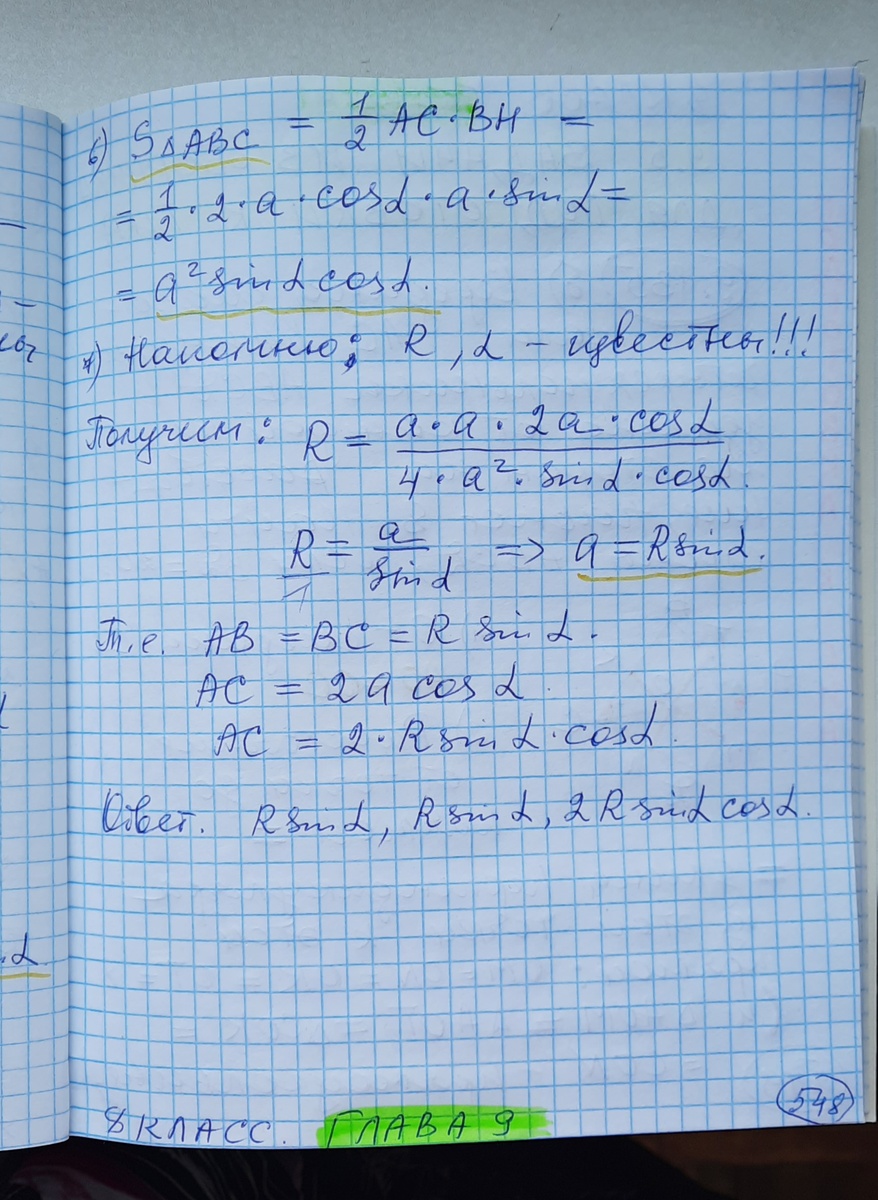 6) S△ABC = 1/2 AC · BH =
= 1/2 · 2 · a · cosα · a · sinα =
= a² sinα cosα.
7) Напомню: R, α – известны!!!
Получим: R = (a · a · 2a · cosα) / (4 · a² · sinα · cosα).
R/1 = a/sinα => a = R sinα.
Т.е. AB = BC = R sinα.
AC = 2a cosα.
AC = 2 · R sinα · cosα.
Ответ. R sinα, R sinα, 2R sinα cosα.
8 КЛАСС. ГЛАВА 9
548